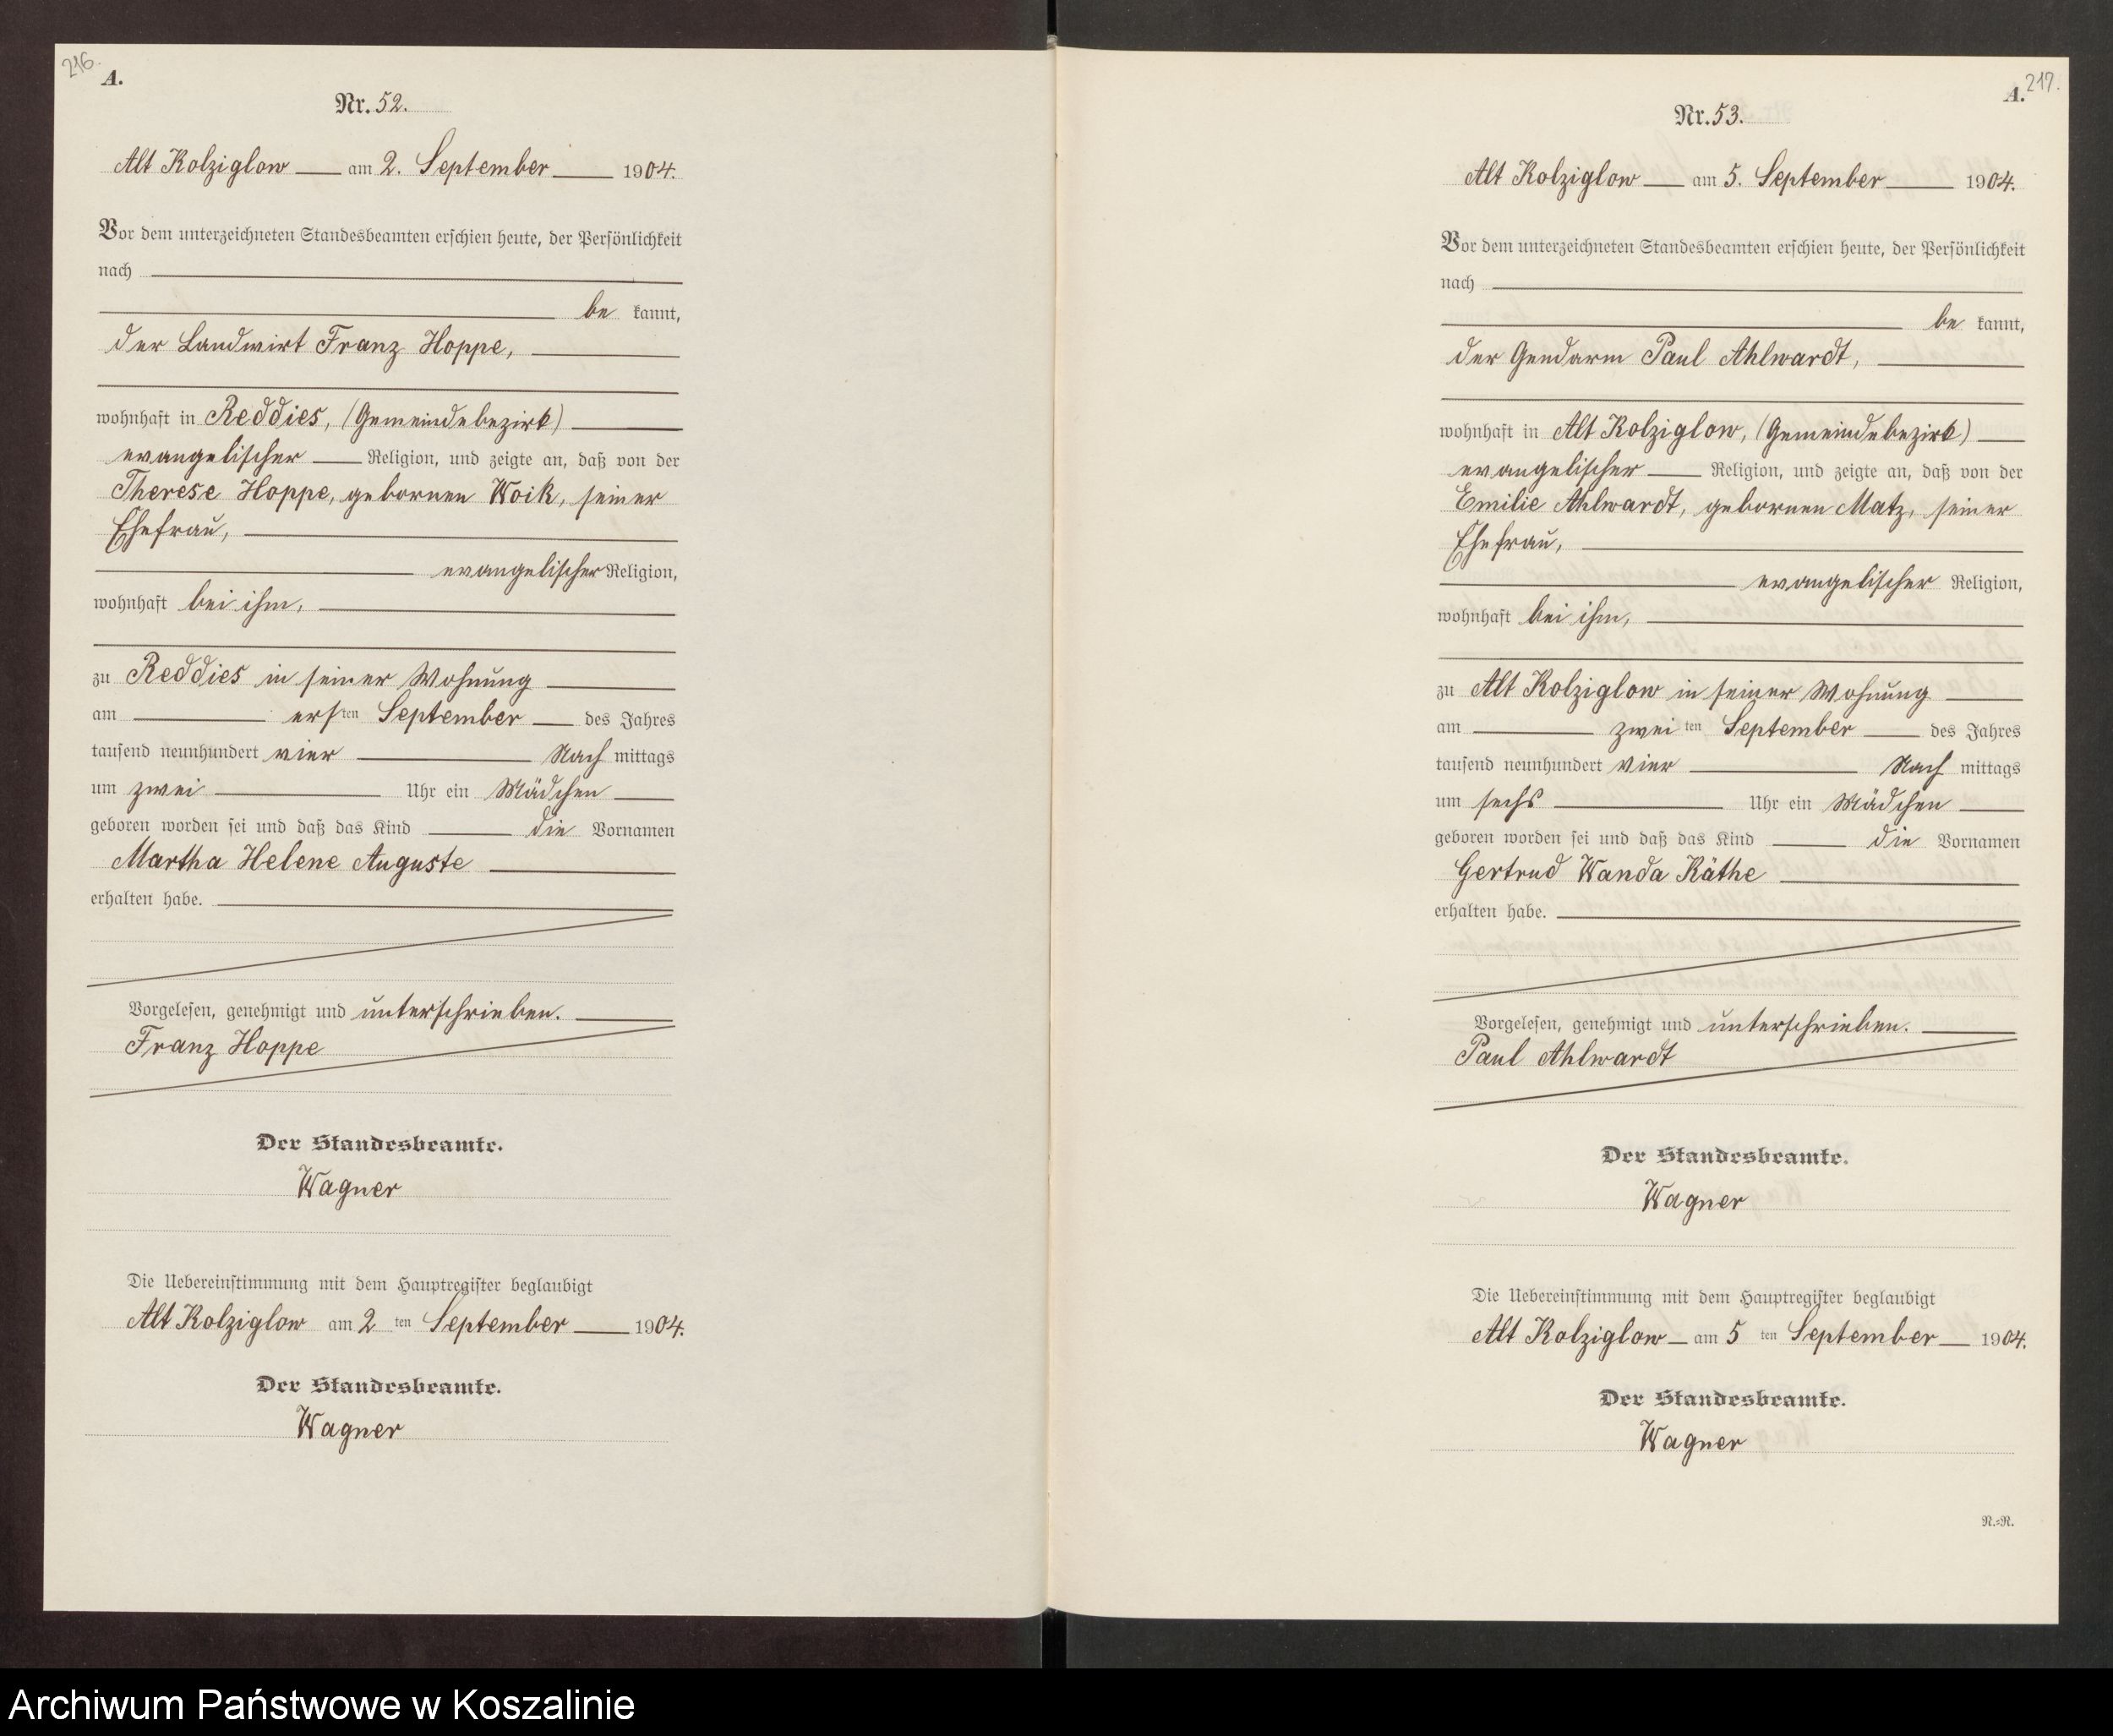 216.
A.
Nr. 52.
Alt Kolziglow am 2. September 1904.
Vor dem unterzeichneten Standesbeamten erschien heute, der Persönlichkeit
nach
be kannt,
der Landwirt Franz Hoppe,
wohnhaft in Reddies, (Gemeindebezirk)
evangelischer Religion, und zeigte an, daß von der
Therese Hoppe, gebornen Woik, seiner
Ehefrau,
evangelischer Religion,
wohnhaft bei ihm,
zu Reddies in seiner Wohnung
am ersten September des Jahres
tausend neunhundert vier Nach mittags
um zwei Uhr ein Mädchen
geboren worden sei und daß das Kind die Vornamen
Martha Helene Auguste
erhalten habe.
Vorgelesen, genehmigt und unterschrieben.
Franz Hoppe
Der Standesbeamte.
Wagner
Die Uebereinstimmung mit dem Hauptregister beglaubigt
Alt Kolziglow am 2 ten September 1904.
Der Standesbeamte.
Wagner
217.
A.
Nr. 53.
Alt Kolziglow am 5. September 1904.
Vor dem unterzeichneten Standesbeamten erschien heute, der Persönlichkeit
nach
be kannt,
der Gendarm Paul Ahlwardt,
wohnhaft in Alt Kolziglow, (Gemeindebezirk)
evangelischer Religion, und zeigte an, daß von der
Emilie Ahlwardt, gebornen Matz, seiner
Ehefrau,
evangelischer Religion,
wohnhaft bei ihm,
zu Alt Kolziglow in seiner Wohnung
am zwei ten September des Jahres
tausend neunhundert vier Nach mittags
um sechs Uhr ein Mädchen
geboren worden sei und daß das Kind die Vornamen
Gertrud Wanda Käthe
erhalten habe.
Vorgelesen, genehmigt und unterschrieben.
Paul Ahlwardt
Der Standesbeamte.
Wagner
Die Uebereinstimmung mit dem Hauptregister beglaubigt
Alt Kolziglow am 5 ten September 1904.
Der Standesbeamte.
Wagner
N.=R.
Archiwum Państwowe w Koszalinie